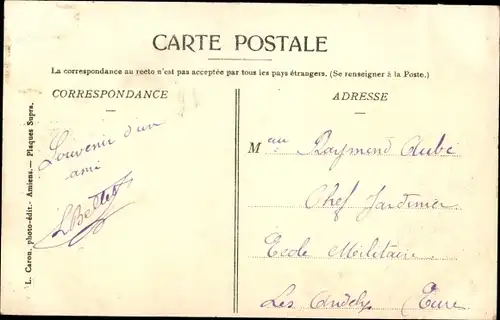 CARTE POSTALE
La correspondance au recto n'est pas acceptée par tous les pays étrangers. (Se renseigner à la Poste.)
CORRESPONDANCE
Souvenir d'un
ami
L Bellet
ADRESSE
M Raymond Aubé
Chef Jardinier
Ecole Militaire
Les Andelys (Eure
L. Caron, photo-édit.- Amiens.— Plaques Supra.